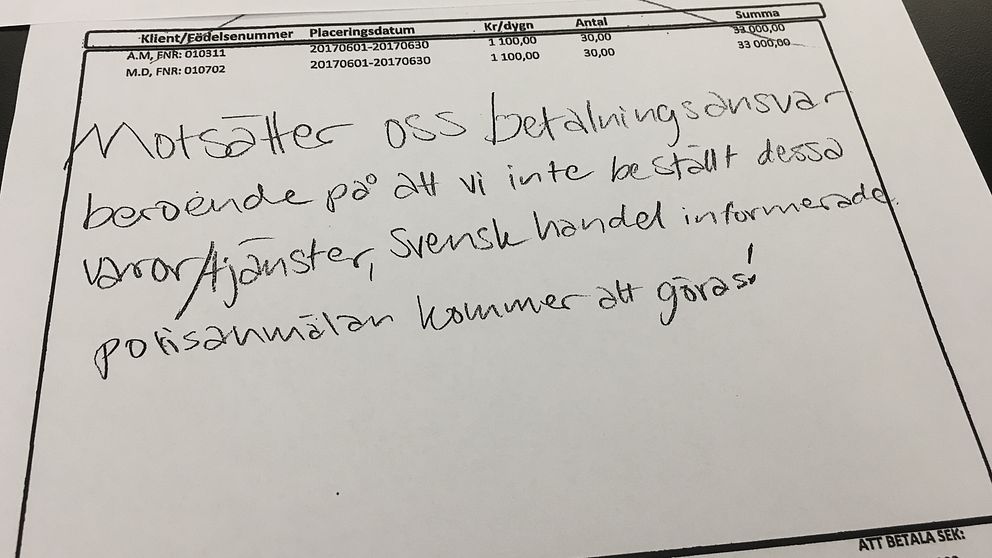 Klient/Födelsenummer Placeringsdatum Kr/dygn Antal Summa
A.M, FNR: 010311 20170601-20170630 1 100,00 30,00 33 000,00
M.D, FNR: 010702 20170601-20170630 1 100,00 30,00 33 000,00
Motsätter oss betalningsansvar
beroende på att vi inte beställt dessa
varor/tjänster, svensk handel informerade.
polisanmälan kommer att göras!
ATT BETALA SEK: